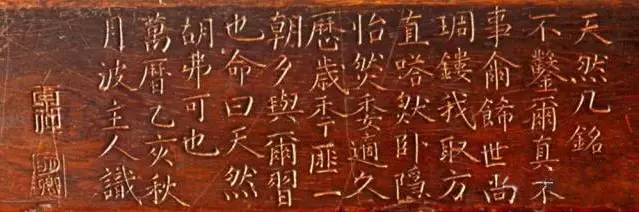 天然几銘
不鑿爾真不
事爾飾世尚
琱鏤我取方
直嗒然卧隐
怡然委適久
歷歲秊匪一
朝夕與爾習
也命曰天然
胡弗可也
萬曆乙亥秋
月波主人識